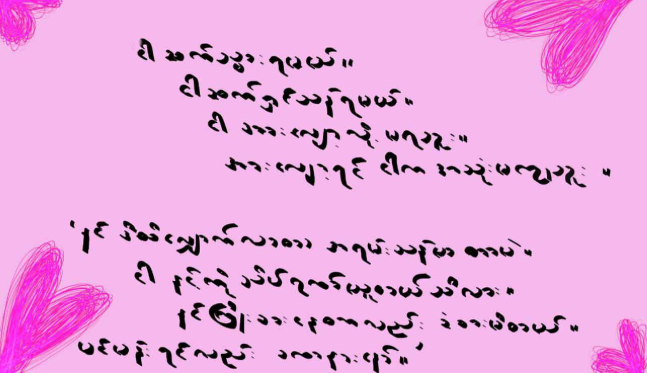 ငါ ဆက်သွားရမယ်။
ငါ ဆက်ရှင်သန်ရမယ်။
ငါ အားလျော့လို့ မရဘူး။
အားလျော့ရင် ငါက အသုံးမကျဘူး ။
' နင် ဒီထိလျှောက်လာတာ အရမ်းသန်မာ တာပဲ။
ငါ နင့်ကို သိပ်ဂုဏ်ယူတယ် သိလား။
နင် ကြိုးစားနေတာလည်း ခံစားမိတယ်။
ပင်ပန်းရင်လည်း ခဏနားနော်။ '